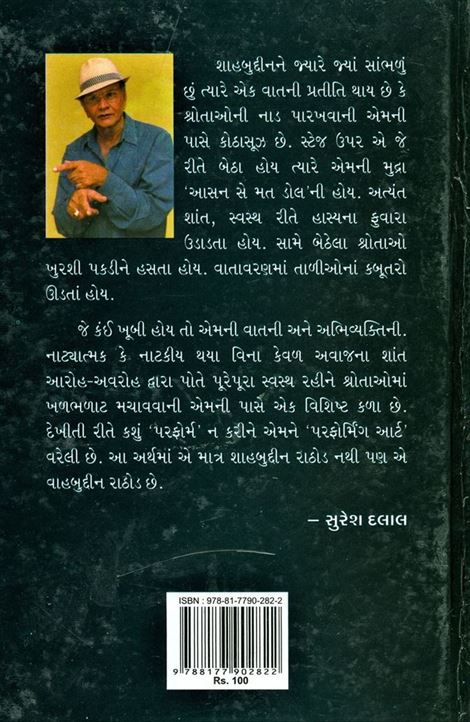 શાહબુદ્દીનને જ્યારે જ્યાં સાંભળું
છું ત્યારે એક વાતની પ્રતીતિ થાય છે કે
શ્રોતાઓની નાડ પારખવાની એમની
પાસે કોઠાસૂઝ છે. સ્ટેજ ઉપર એ જે
રીતે બેઠા હોય ત્યારે એમની મુદ્રા
‘આસન સે મત ડોલ’ની હોય. અત્યંત
શાંત, સ્વસ્થ રીતે હાસ્યના ફુવારા
ઉડાડતા હોય. સામે બેઠેલા શ્રોતાઓ
ખુરશી પકડીને હસતા હોય. વાતાવરણમાં તાળીઓનાં કબૂતરો
ઊડતાં હોય.
જે કંઈ ખૂબી હોય તો એમની વાતની અને અભિવ્યક્તિની.
નાટ્યાત્મક કે નાટકીય થયા વિના કેવળ અવાજના શાંત
આરોહ-અવરોહ દ્વારા પોતે પૂરેપૂરા સ્વસ્થ રહીને શ્રોતાઓમાં
ખળભળાટ મચાવવાની એમની પાસે એક વિશિષ્ટ કળા છે.
દેખીતી રીતે કશું ‘પરફોર્મ’ ન કરીને એમને ‘પરફોર્મિંગ આર્ટ’
વરેલી છે. આ અર્થમાં એ માત્ર શાહબુદ્દીન રાઠોડ નથી પણ એ
વાહબુદ્દીન રાઠોડ છે.
– સુરેશ દલાલ
ISBN : 978-81-7790-282-2
9 788177 902822
Rs. 100